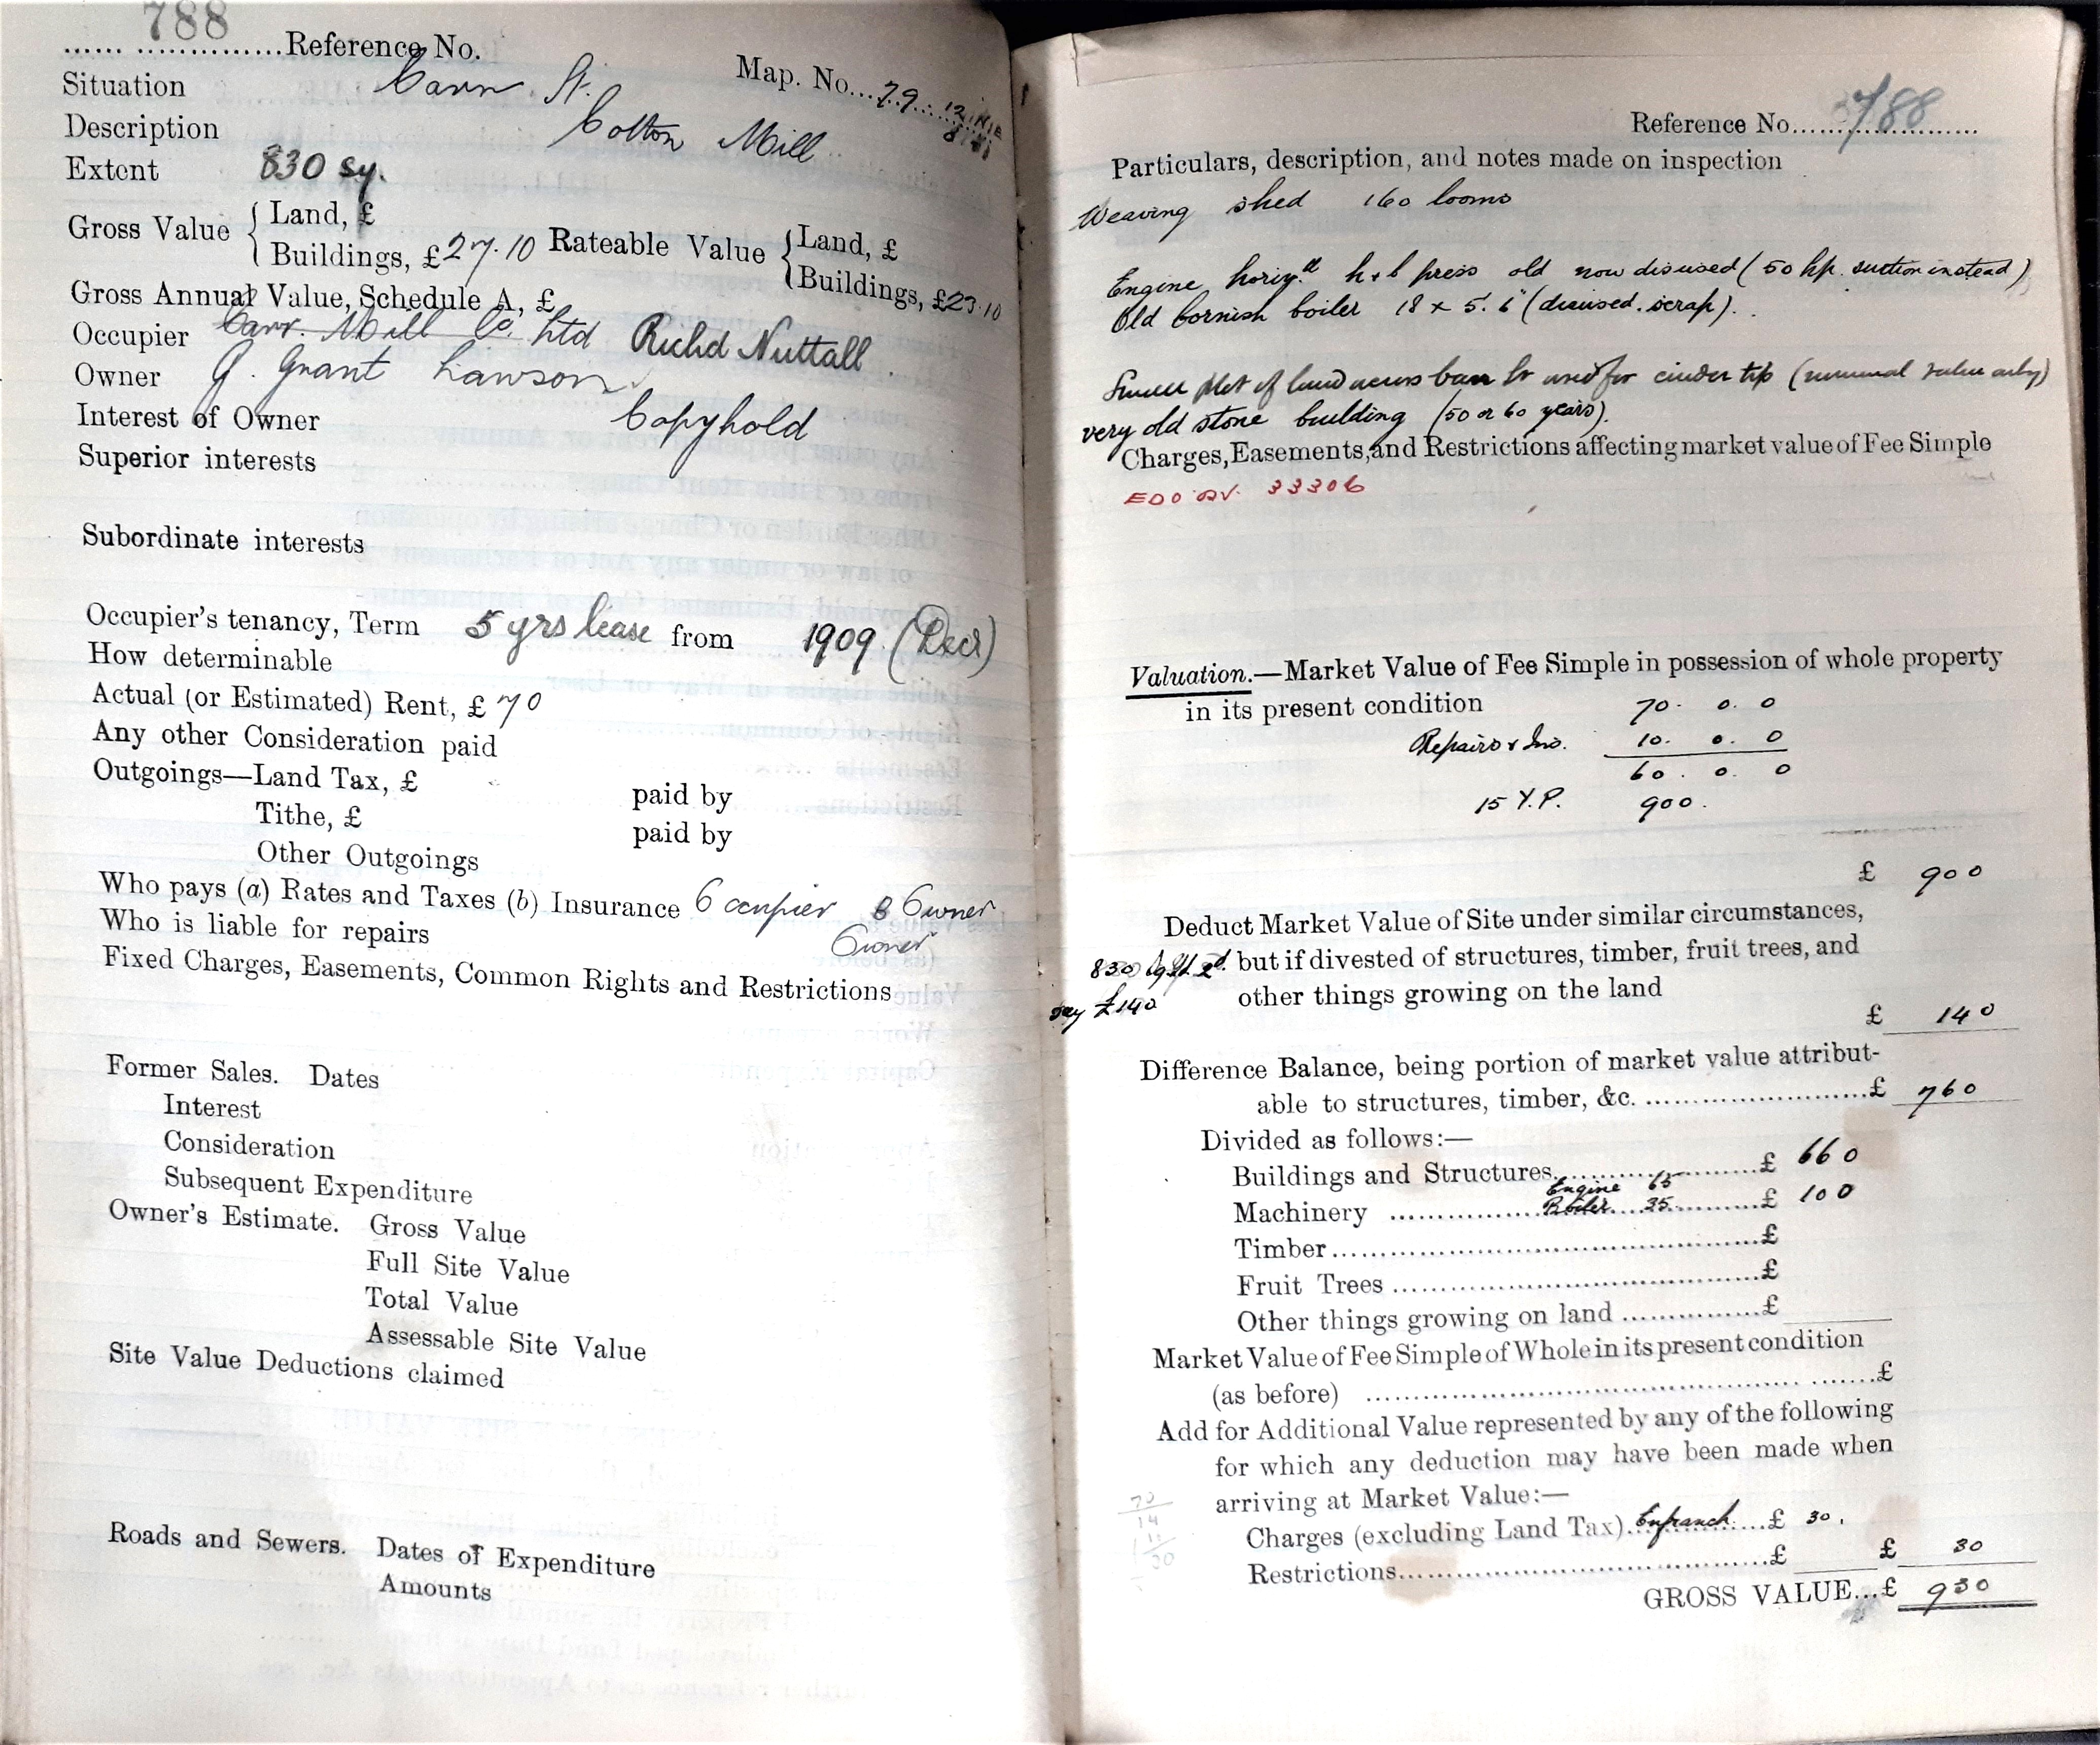 788
...... ..............Reference No.
Map. No...79...12
Situation Carr St.
Description Cotton Mill
Extent 830 sy.
Gross Value { Land, £
Buildings, £27.10 Rateable Value { Land, £
Buildings, £23.10
Gross Annual Value, Schedule A, £
Occupier Carr Mill Co. Ltd Richd Nuttall
Owner G. Grant Lawson
Interest of Owner Copyhold
Superior interests
Subordinate interests
Occupier's tenancy, Term 5 yrs lease from 1909 (Decr)
How determinable
Actual (or Estimated) Rent, £ 70
Any other Consideration paid
Outgoings—Land Tax, £ paid by
Tithe, £ paid by
Other Outgoings
Who pays (a) Rates and Taxes (b) Insurance Occupier B Owner
Who is liable for repairs Owner
Fixed Charges, Easements, Common Rights and Restrictions
Former Sales. Dates
Interest
Consideration
Subsequent Expenditure
Owner's Estimate. Gross Value
Full Site Value
Total Value
Assessable Site Value
Site Value Deductions claimed
Roads and Sewers. Dates of Expenditure
Amounts
Reference No......788
Particulars, description, and notes made on inspection
Weaving shed 160 looms
Engine horizll h & l press old now disused (50 hp. suction instead)
Old Cornish boiler 18 x 5'.6" (disused. scrap).
Small plot of land across Carr St used for cinder tip (nominal value only)
very old stone building (50 or 60 years).
Charges, Easements, and Restrictions affecting market value of Fee Simple
33306
Valuation.—Market Value of Fee Simple in possession of whole property
in its present condition 70. 0. 0
Repairs & Ins. 10. 0. 0
60. 0. 0
15 Y.P. 900.
£ 900
Deduct Market Value of Site under similar circumstances,
830 but if divested of structures, timber, fruit trees, and
say £140 other things growing on the land
£ 140
Difference Balance, being portion of market value attribut-
able to structures, timber, &c. ........................£ 760
Divided as follows:—
Buildings and Structures......................£ 660
Engine 65
Machinery ..............Boiler 35..........£ 100
Timber..............................................£
Fruit Trees ........................................£
Other things growing on land ...............£
Market Value of Fee Simple of Whole in its present condition
(as before) ..................................................£
Add for Additional Value represented by any of the following
for which any deduction may have been made when
arriving at Market Value:—
Charges (excluding Land Tax).Enfranch....£ 30.
Restrictions.......................................£ £ 30
GROSS VALUE...£ 930